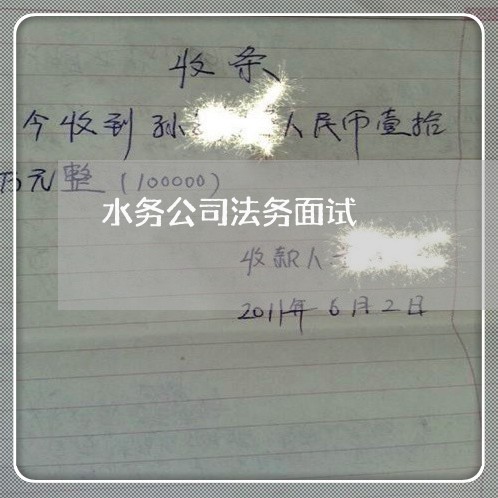 收条
今收到孙 人民币壹拾
万元整(100000)
水务公司法务面试
收款人
2011年6月2日